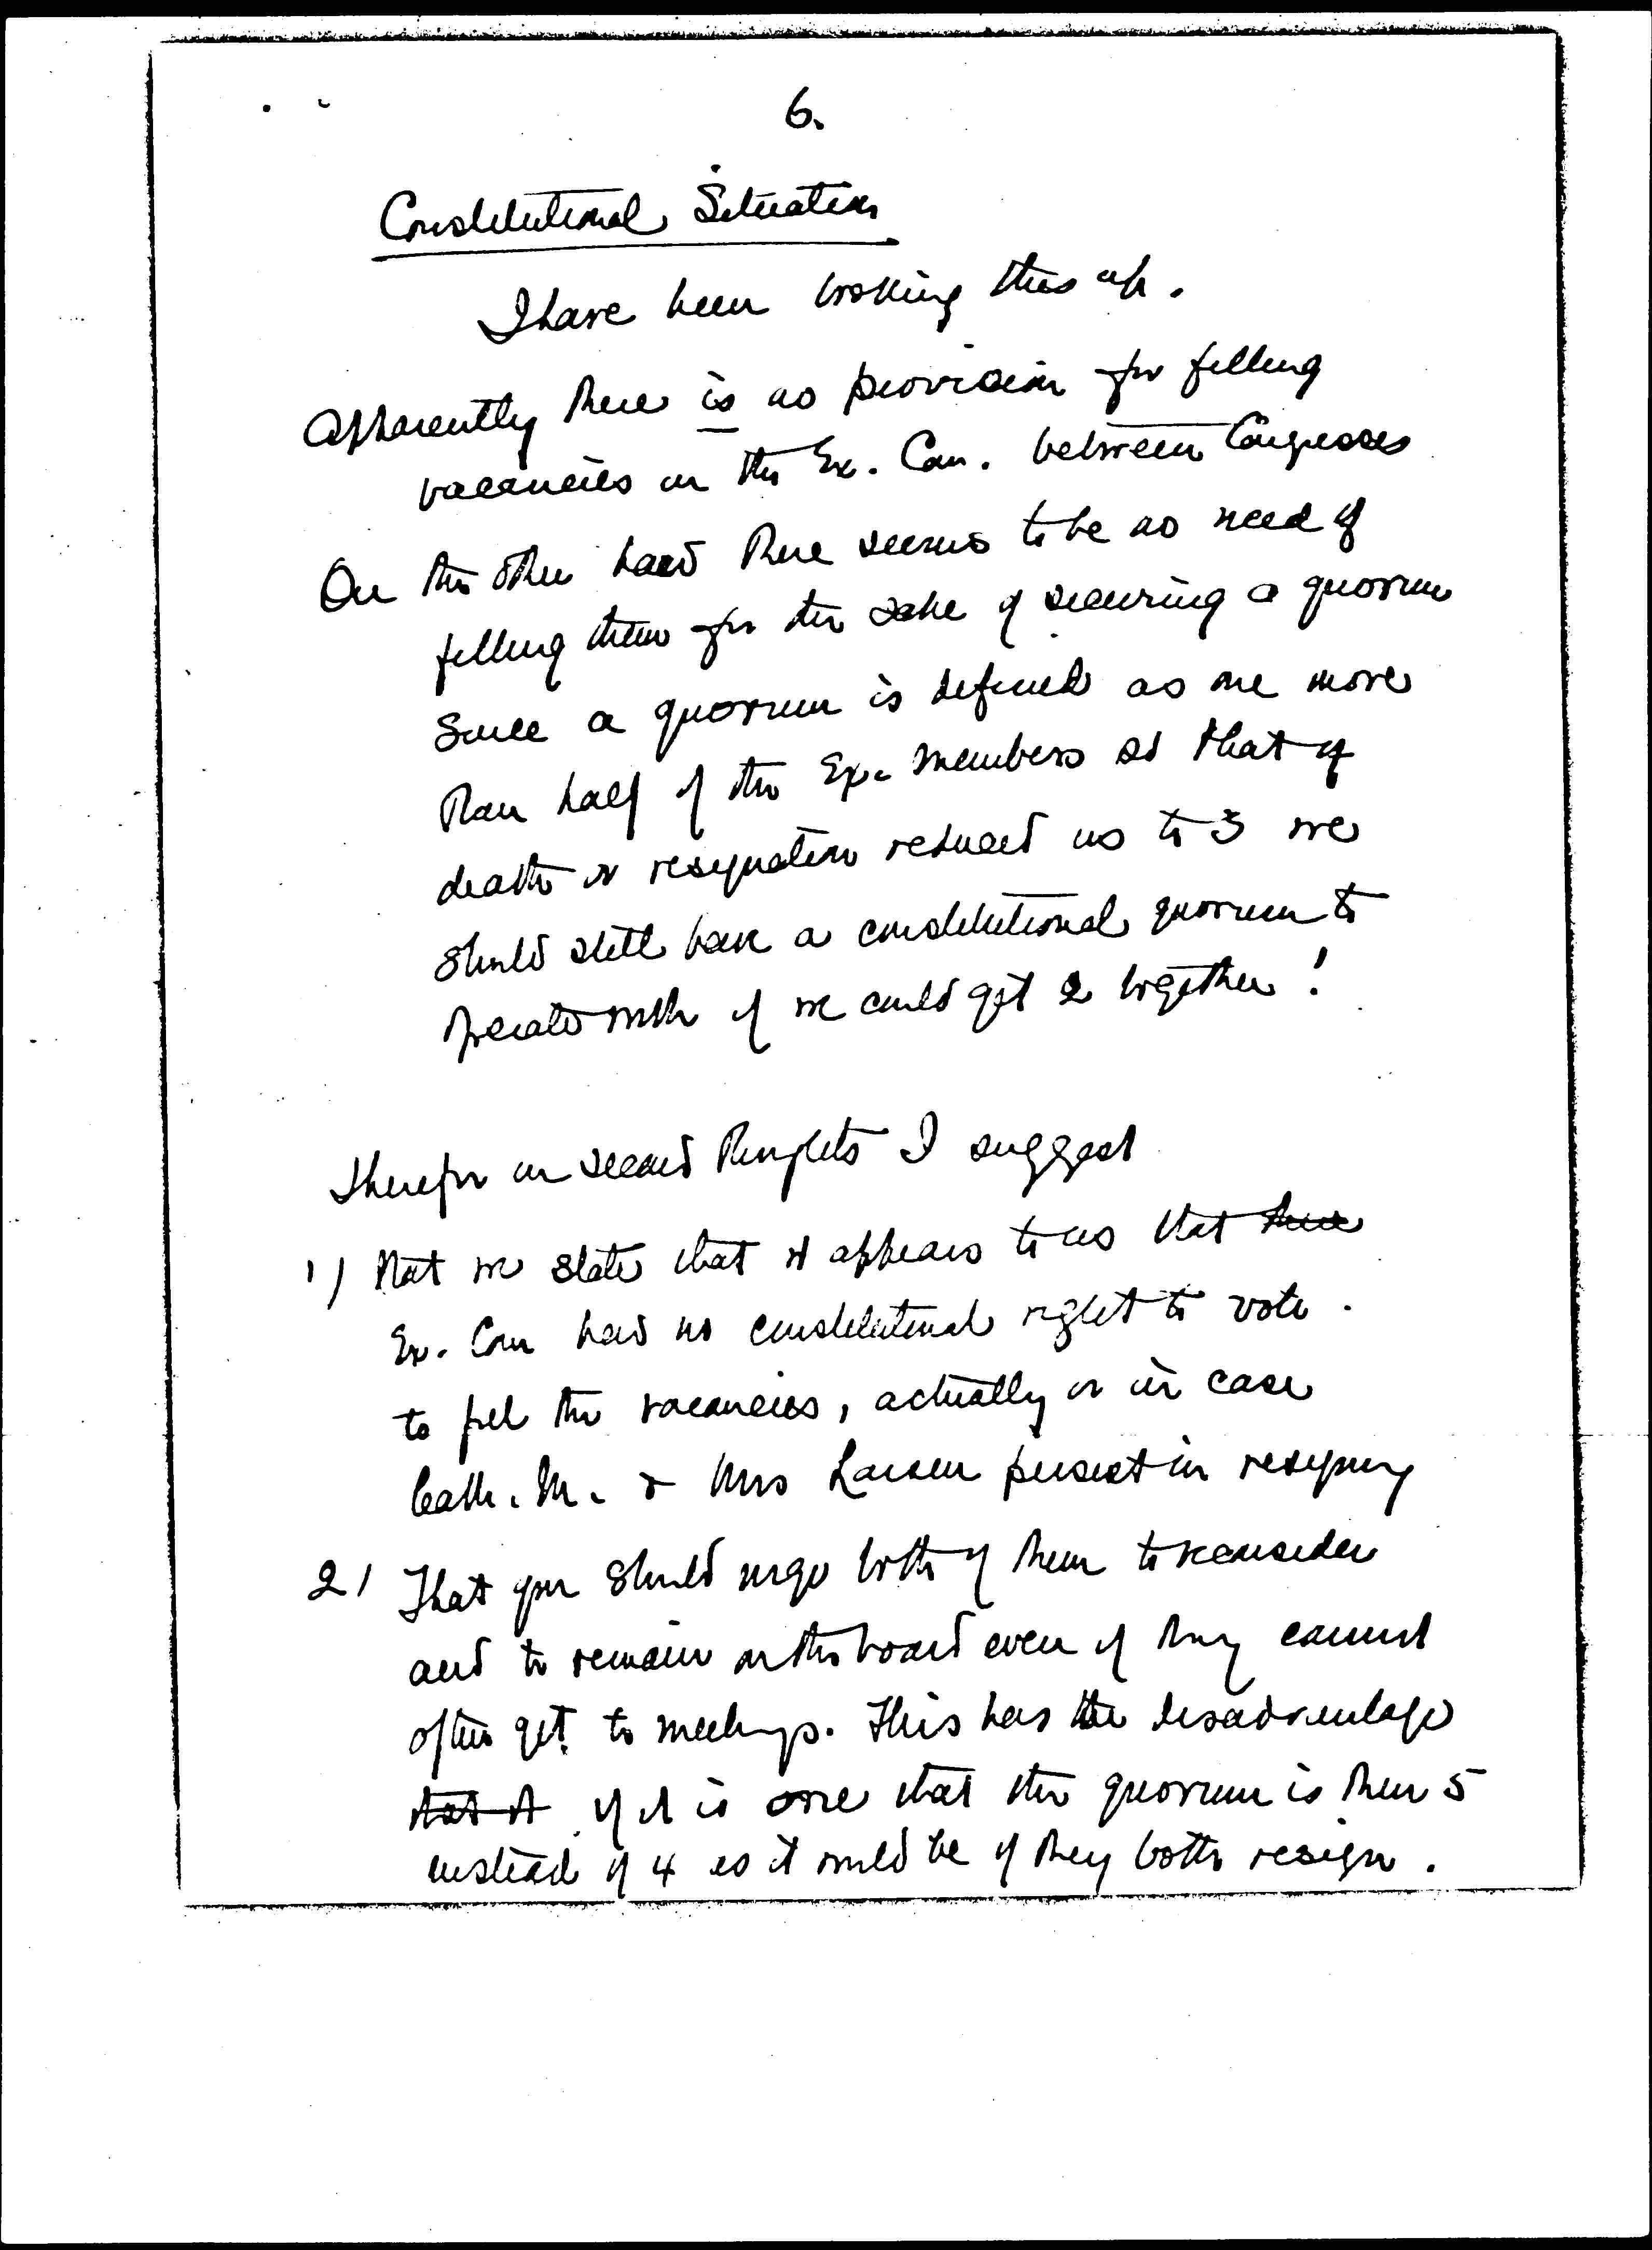 6.
Constitutional Situation
I have been looking this up.
Apparently there is no provision for filling
vacancies on the Ex. Com. between Congresses
On the other hand there seems to be no need of
filling them for the sake of securing a quorum
Since a quorum is defined as one more
than half of the Ex. members so that if
death or resignation reduced us to 3 we
should still have a constitutional quorum to
operate with if we could get 2 together!
Therefor on second thoughts I suggest
1) That we state that it appears to us that there
Ex. Com has no constitutional right to vote
to fill the vacancies, actually or in case
Cath. M. & Mrs Larsen persist in resigning
2) That you should urge both of them to reconsider
and to remain on the board even if they cannot
often get to meetings. This has the disadvantage
that it if it is one that the quorum is then 5
instead of 4 as it would be if they both resign.